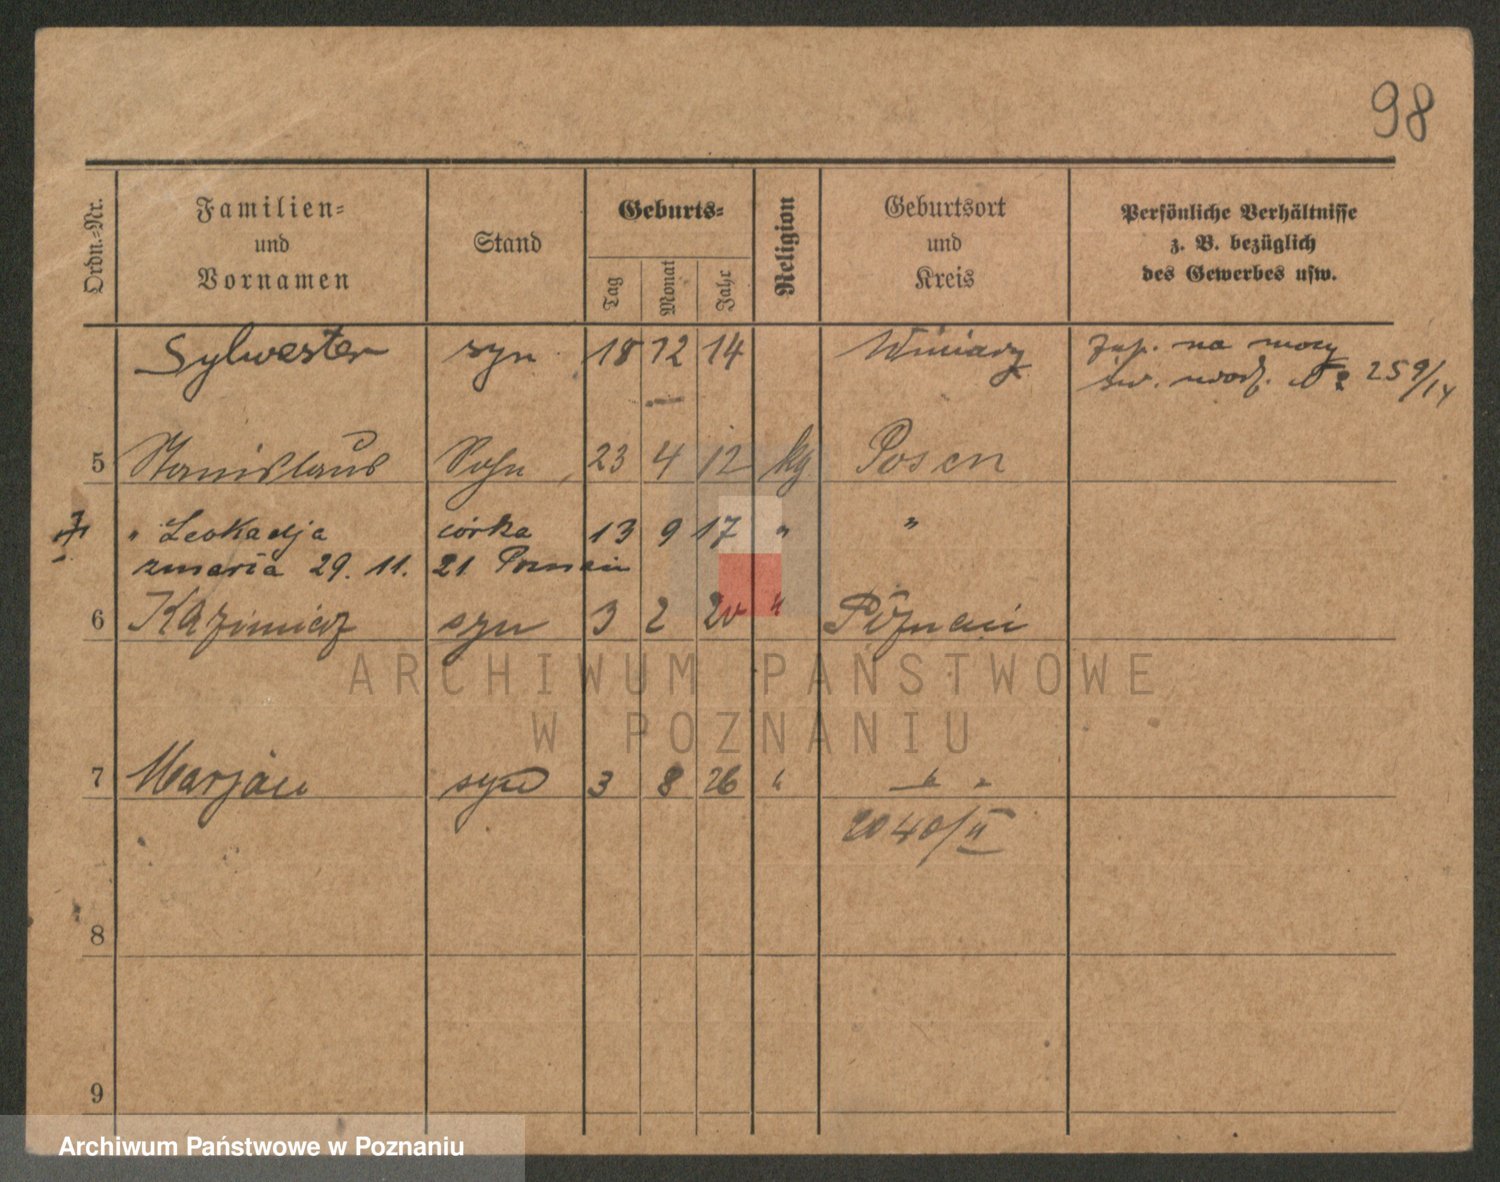 98
Ordn.-Nr.
Familien-
und
Vornamen
Stand
Geburts-
Tag
Monat
Jahr
Religion
Geburtsort
und
Kreis
Persönliche Verhältnisse
z. B. bezüglich
des Gewerbes usw.
Sylwester syn 18 12 14 Winiary zap. na mocy
św. urodz. № 259/14
5 Stanislaus Sohn 23 4 12 kg Posen
" Leokadja córka 13 9 17 " "
zmarła 29. 11. 21 Poznań
6 Kazimierz syn 3 2 20 " Poznań
7 Marjan syn 3 8 26 " " "
2040/II
8
9
ARCHIWUM PAŃSTWOWE
W POZNANIU
Archiwum Państwowe w Poznaniu